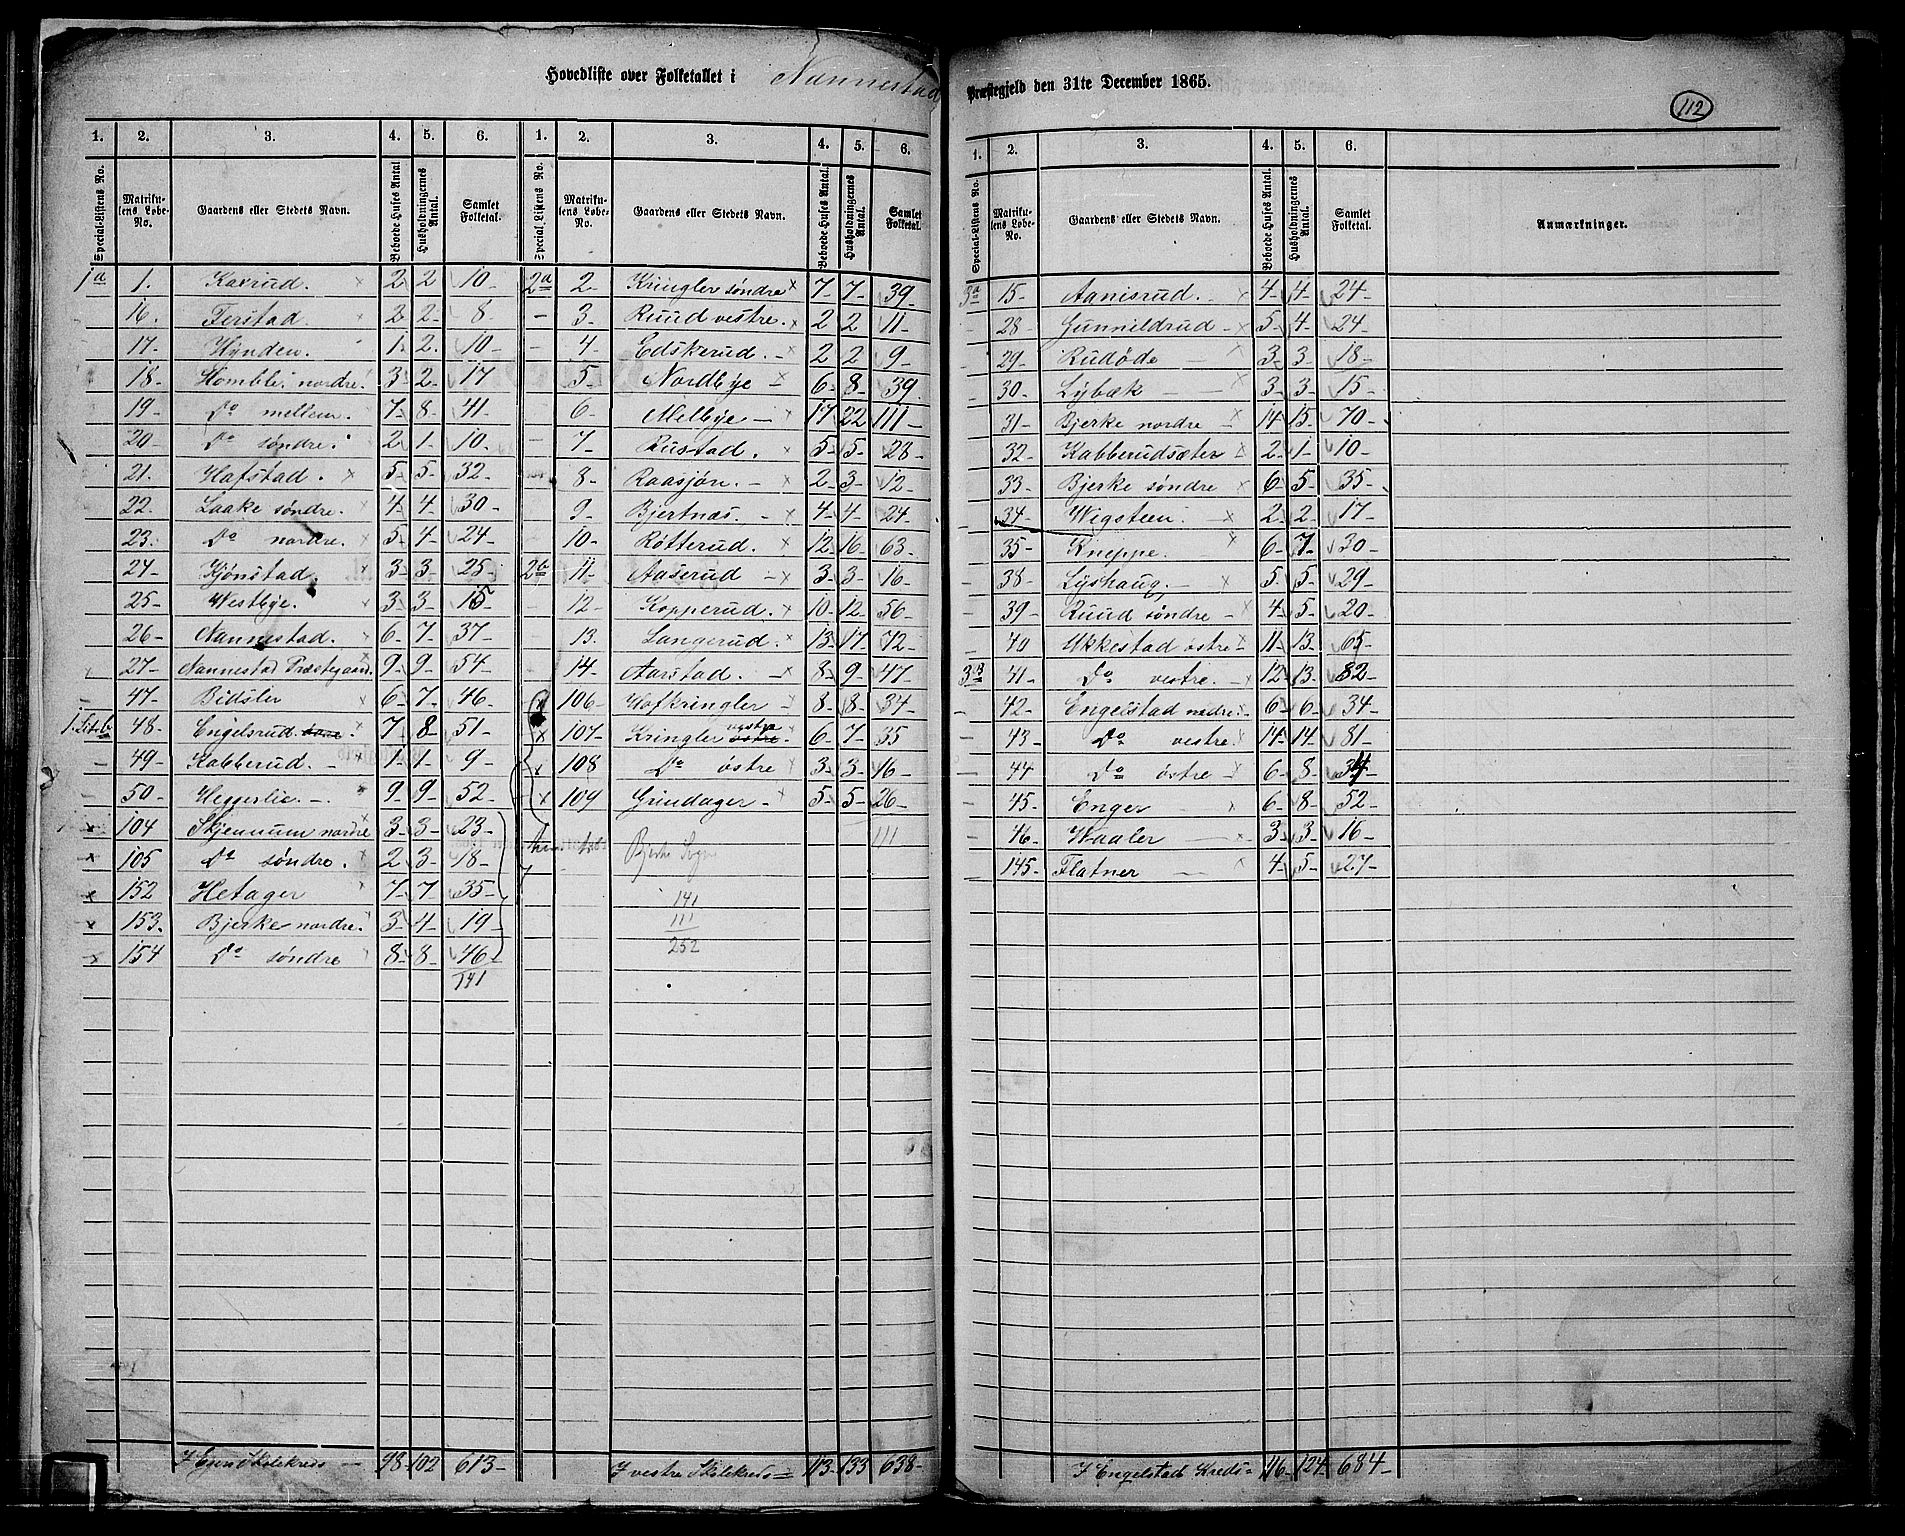 Hovedliste over Folketallet i Nannestad
Præstegjeld den 31te December 1865.
112
1. 2. 3. 4. 5. 6. 1. 2. 3. 4. 5. 6.
Special-Listens No. Matrikulens Løbe-No. Gaardens eller Stedets Navn. Beboede Huses Antal Husholdningernes Antal. Samlet Folketal. Special-Listens No. Matrikulens Løbe-No. Gaardens eller Stedets Navn. Beboede Huses Antal. Husholdningernes Antal. Samlet Folketal.
1a 1. Kaxrud. x 2 2 10
16. Terstad. x 2 2 8
17. Hynden. 1 2 10
18. Homble nordre. 3 2 17
19. Do mellem. 7 8 41
20. Do søndre. 2 1 10
21. Hafstad. x 5 5 32
22. Laake søndre. x 4 4 30
23. Do nordre. x 5 4 24
24. Kjønstad. x 3 3 25
25. Westbye. x 3 3 15
26. Nannestad. x 6 7 37
27. Nannestad Præstegaard. 9 9 54
47. Bidsler 6 7 46
1. Lit. b. 48. Engelsrud. 7 8 51
49. Kabberud. 1 1 9
50. Heggerlie. 9 9 52
x 104 Skjennum nordre 3 3 23
x 105 Do søndre. 2 3 18
x 152 Hetager 7 7 35
x 153. Bjerke nordre. 3 4 19
x 154 Do søndre 8 8 46
141
I Eiern Skolekreds 98 102 613
2a 2 Kringler søndre x 7 7 39
3 Ruud vestre. x 2 2 11
4 Edskerud. x 2 2 9
5 Nordbye x 6 8 39
6 Melbye x 17 22 111
7 Rustad. x 5 5 28
8 Raasjøn. x 2 3 12
9 Bjertnæs. x 4 4 24
10 Røtterud. x 12 16 63
2b 11 Aaserud x 3 3 16
12 Kopperud. x 10 12 56
13. Langerud. x 13 17 72
14 Aarstad. x 8 9 47
x 106 Hofkringler x 8 8 34
x 107 Kringler østre vestre 6 7 35
x 108 Do østre x 3 3 16
x 109 Grindager x 5 5 26
111
Bjerke Sogn
141
111
252
I vestre Skolekreds 113 133 638
1. 2. 3. 4. 5. 6.
Special-Listens No. Matrikulens Løbe-No. Gaardens eller Stedets Navn. Beboede Huses Antal. Husholdningernes Antal. Samlet Folketal. Anmærkninger.
3a 15 Aanisrud. x 4 4 24
28 Gunnildrud x 5 4 24
29 Rudøde x 3 3 18
30 Lybæk x 3 3 15
31 Bjerke nordre x 14 15 70
32 Kabberudsæter x 2 1 10
33 Bjerke søndre x 6 5 35
34 Wigsteen. x 2 2 17
35 Kneppe. x 6 7 30
38 Lyshaug. x 5 5 29
39 Ruud søndre x 4 5 20
40 Ukkestad østre x 11 13 65
3B 41 Do vestre. x 12 13 82
42 Engelstad nordre. x 6 6 34
43 Do vestre x 14 14 81
44 Do østre x 6 8 34
45 Enger x 6 8 52
46 Waaler x 3 3 16
145 Flatner x 4 5 27
I Engelstad Kreds 116 124 684